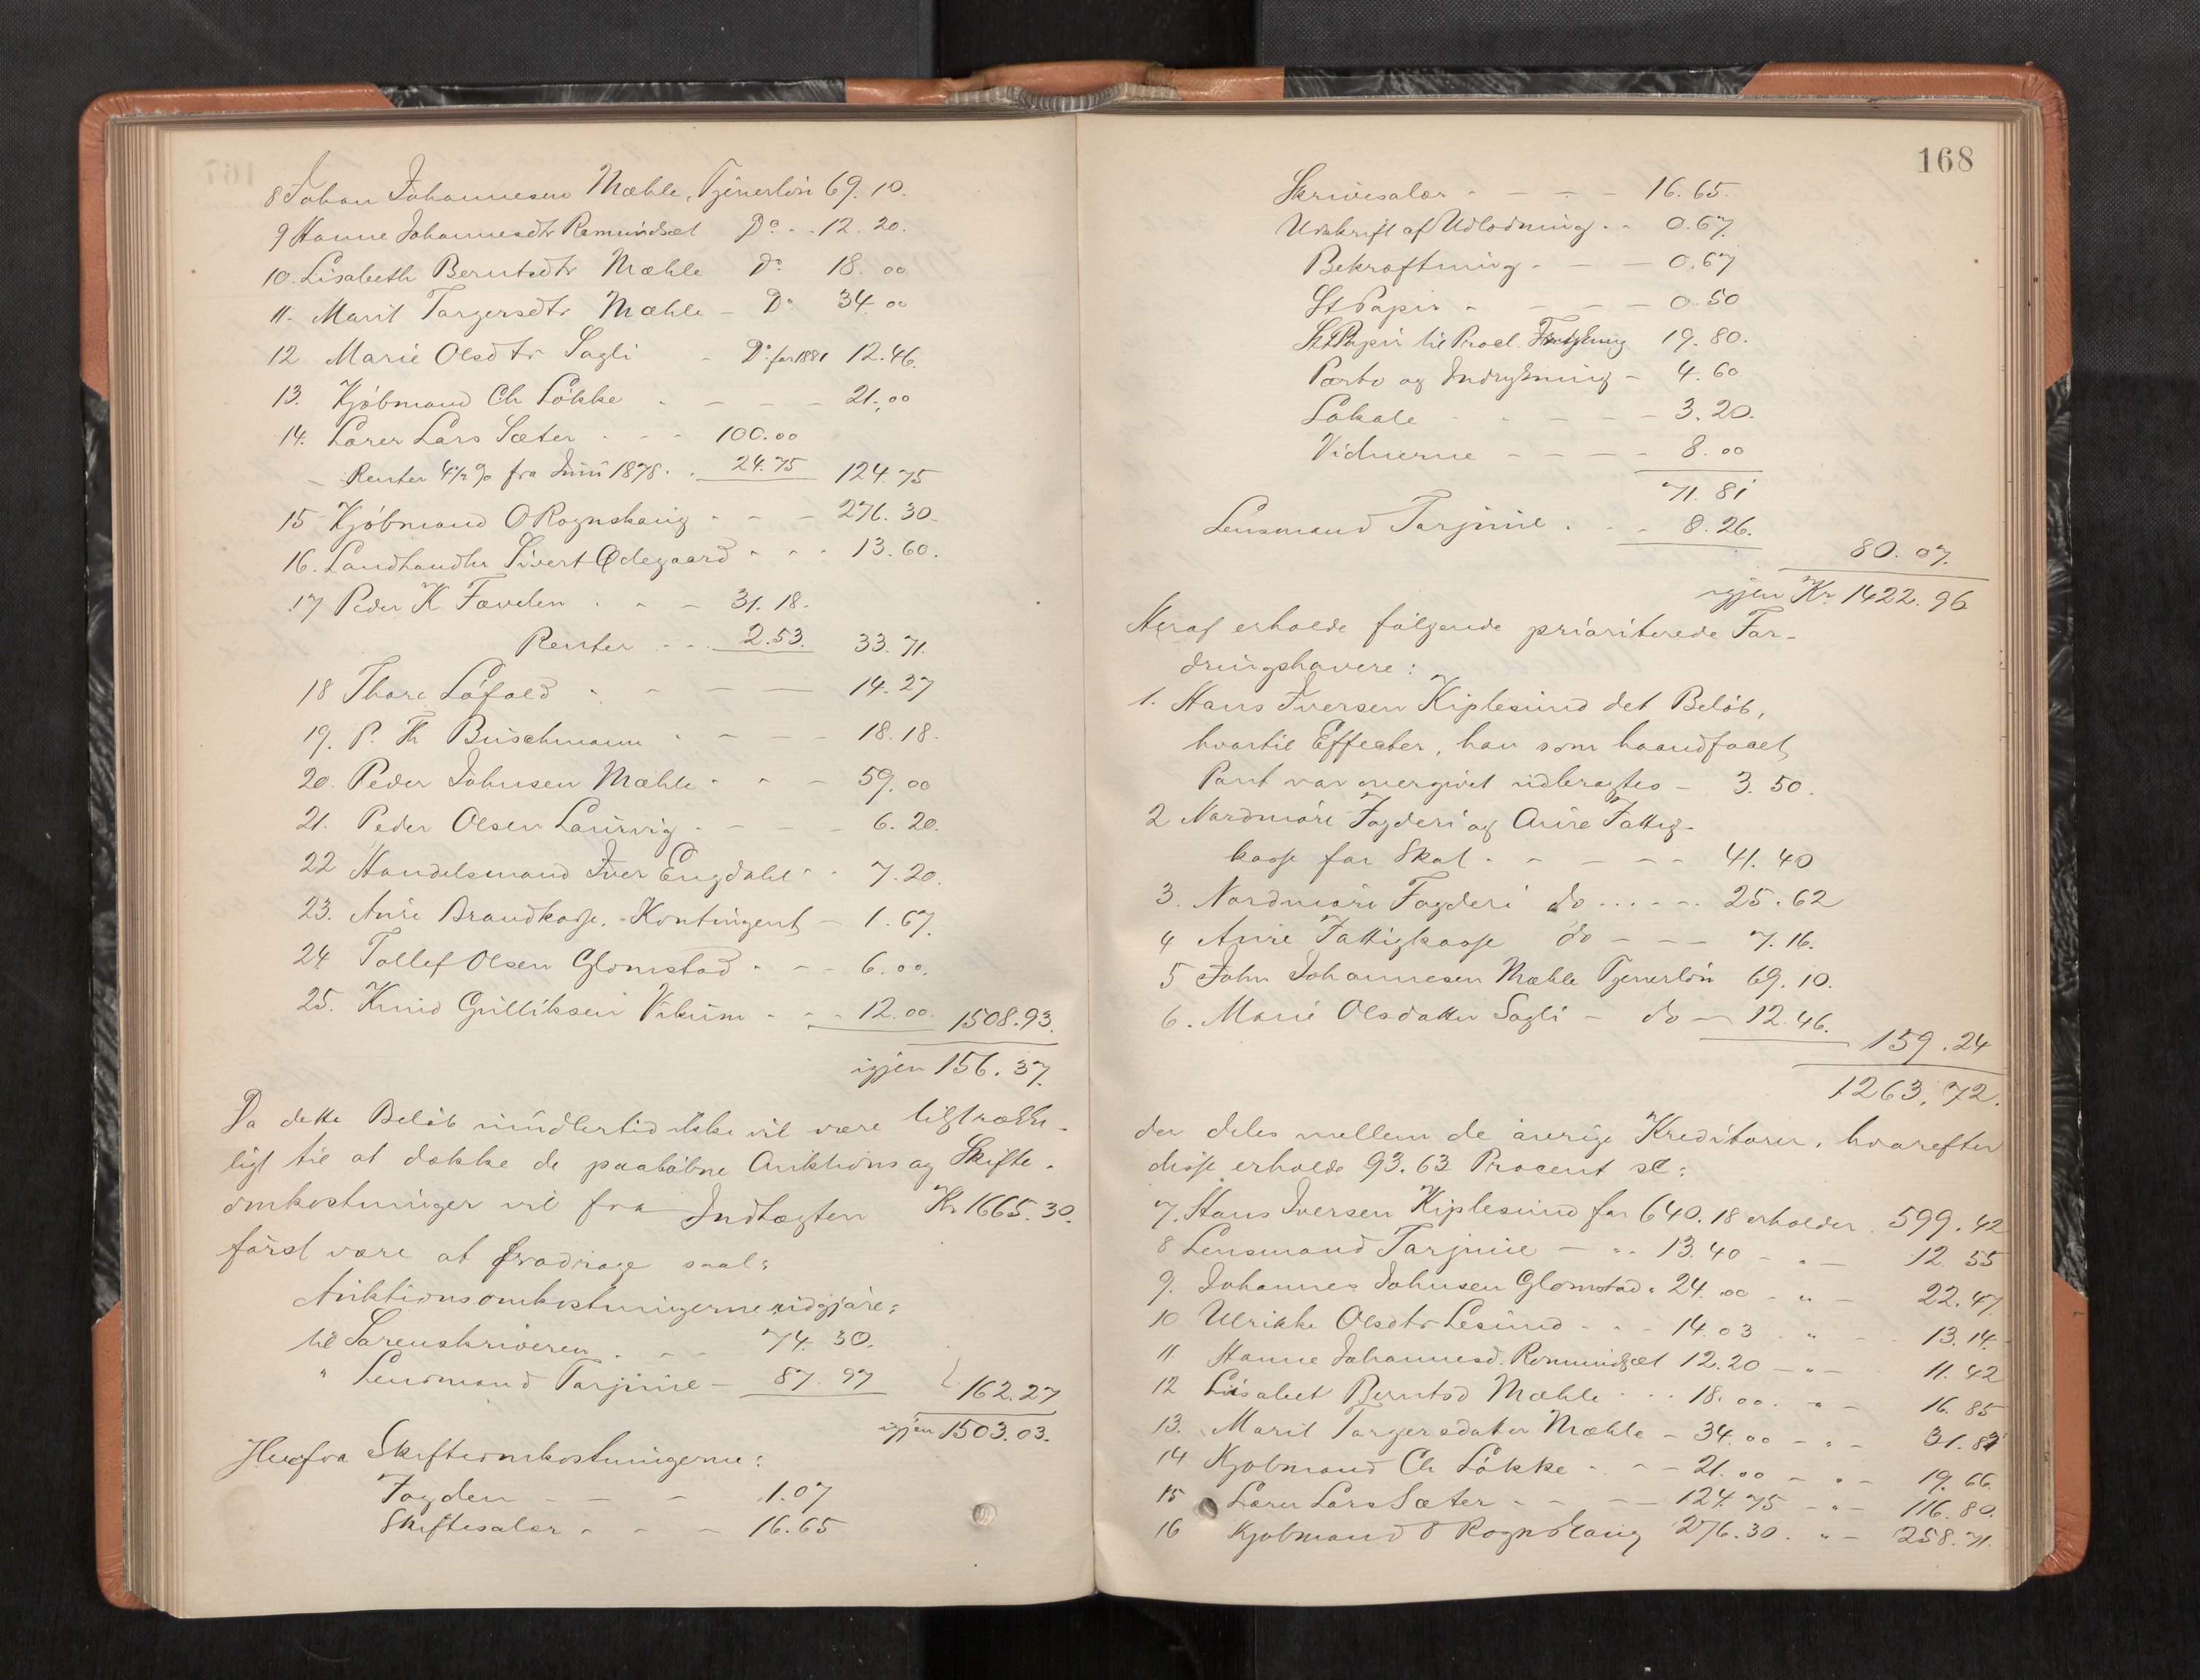 8 Johan Johannesen Mæhle, Tjenerløn 69.10.
9 Hanne Johannesdtr Romundsæt Do - - 12.20.
10. Lisabeth Berntsdtr Mæhle Do 18.00
11. Marit Torgersdtr Mæhle - Do 34.00
12 Marie Olsdtr Sagli - Do for 1881 12.46.
13. Kjøbmand Ch Løkke - - - - 21.00
14. Lærer Lars Sæter - - - 100.00
- Renter 4 1/2 % fra Juni 1878. . 24.75 124.75
15 Kjøbmand O Rognskaug - - - 276.30.
16. Landhandler Sivert Ødegaard - - - 13.60.
17 Peder K Fævelen - - - 31.18.
Renter - - - 2.53. 33.71.
18 Thore Løfald - - - - 14.27
19. P. Th Buschmann - - - - 18.18.
20. Peder Johnsen Mæhle - - - 59.00
21. Peder Olsen Laurvig - - - - 6.20.
22 Handelsmand Iver Engdahl - - 7.20.
23. Aure Brandkasse. - Kontingent - 1.67.
24. Tollef Olsen Glomstad - - - 6.00.
25. Knud Gulliksen Vikum - - - 12.00. 1508.93.
igjen 156.37.
Da dette Beløb imidlertid ikke vil være tilstrække-
ligt til at dække de paaløbne Auktions og Skifte-
omkostninger vil fra Indtægten Kr 1665.30.
først være at fradrage saal:
Auktionsomkostningerne udgjøre:
til Sorenskriveren . - - 74.30.
" Lensmand Torjuul - 87.97 162.27
igjen 1503.03.
Herfra Skifteomkostningerne:
Fogden - - - 1.07
Skiftesalær - - - 16.65
168
Skrivesalær - - - - 16.65.
Udskrift af Udlodning - - 0.67.
Bekræftning - - - 0.67
St Papir - - - - 0.50
St Papir til Procl. 19.80.
Porto og Indrykning - 4.60.
Lokale - - - - 3.20.
Vidnerne - - - - 8.00
71.81
Lensmand Torjuul . - - 8.26.
80.07.
igjen Kr 1422.96
Heraf erholde følgende prioriterede For-
dringshavere:
1. Hans Iversen Kiplesund det Beløb,
hvortil Effecter, han som haandfaaet
Pant var overgivet udbragtes - 3.50.
2 Nordmøre Fogderi og Aure Fattig-
kasse for Skat - - - - - 41.40
3. Nordmøre Fogderi do . . . - - 25.62
4 Aure Fattigkasse do - - - 7.16.
5 John Johannesen Mæhle Tjenerløn 69.10.
6. Marie Olsdatter Sagli - do - 12.46.
159.24
1263.72.
der deles mellem de øvrige Kreditorer, hvorefter
disse erholde 93.63 Procent sl:
7. Hans Iversen Kiplesund for 640.18 erholder 599.42
8 Lensmand Torjuul - " 13.40 - " - 12.55
9. Johannes Johnsen Glomstad " 24.00 - " - 22.47
10 Ulrikke Olsdtr Lesund - - - 14.03 - " - 13.14.
11 Hanne Johannesd. Romundsæt 12.20 - " - 11.42
12 Lisabet Berntsd Mæhle - - - 18.00. - " - 16.85
13. Marit Torgersdatter Mæhle - 34.00 - " - 31.83
14 Kjøbmand Ch Løkke - - - 21.00 - " - 19.66.
15 Lærer Lars Sæter - - - 124.75 - " - 116.80.
16 Kjøbmand O Rognskaug 276.30. " - 258.71.